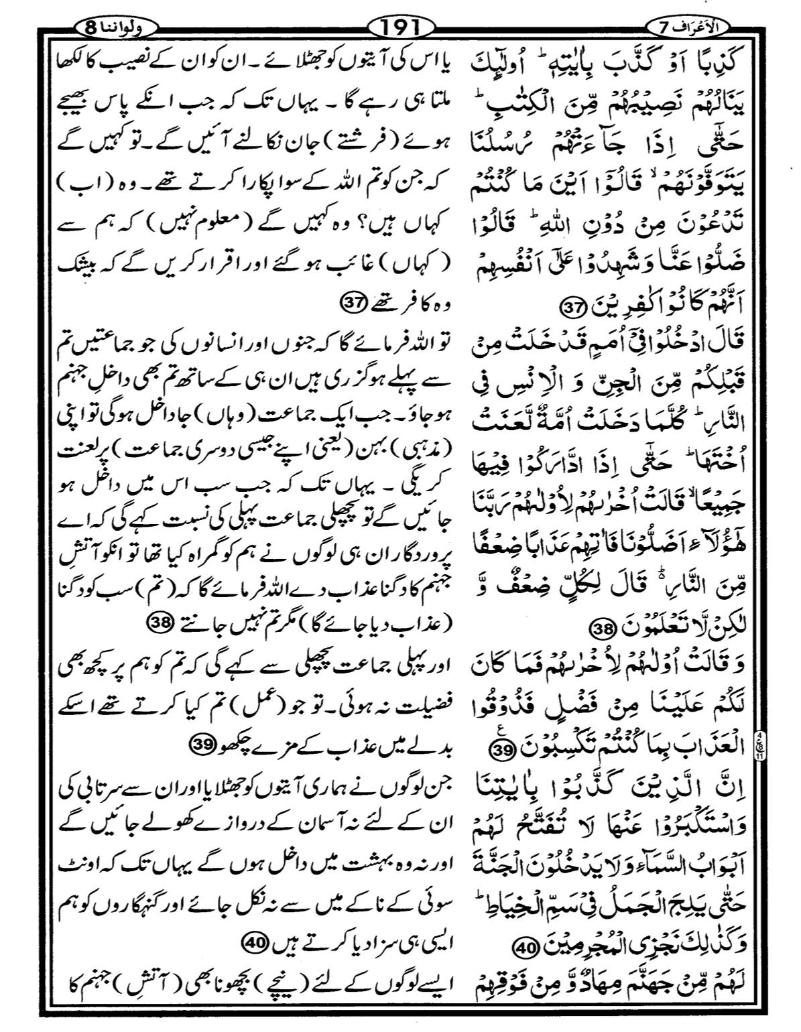 الاعراف 7
191
ولواننا 8
كَذِبًا اَوْ كَذَّبَ بِاٰيٰتِهٖ ؕ اُولٰٓئِكَ
يَنَالُهُمْ نَصِيْبُهُمْ مِّنَ الْكِتٰبِ ؕ
حَتّٰۤى اِذَا جَآءَتْهُمْ رُسُلُنَا
يَتَوَفَّوْنَهُمْ ۙ قَالُوْۤا اَيْنَ مَا كُنْتُمْ
تَدْعُوْنَ مِنْ دُوْنِ اللّٰهِ ؕ قَالُوْا
ضَلُّوْا عَنَّا وَ شَهِدُوْا عَلٰۤى اَنْفُسِهِمْ
اَنَّهُمْ كَانُوْا كٰفِرِيْنَ 37
قَالَ ادْخُلُوْا فِيْۤ اُمَمٍ قَدْ خَلَتْ مِنْ
قَبْلِكُمْ مِّنَ الْجِنِّ وَ الْاِنْسِ فِي
النَّارِ ؕ كُلَّمَا دَخَلَتْ اُمَّةٌ لَّعَنَتْ
اُخْتَهَا ؕ حَتّٰۤى اِذَا ادَّارَكُوْا فِيْهَا
جَمِيْعًا ۙ قَالَتْ اُخْرٰىهُمْ لِاُوْلٰىهُمْ رَبَّنَا
هٰۤؤُلَآءِ اَضَلُّوْنَا فَاٰتِهِمْ عَذَابًا ضِعْفًا
مِّنَ النَّارِ ؕ قَالَ لِكُلٍّ ضِعْفٌ وَّ
لٰكِنْ لَّا تَعْلَمُوْنَ 38
وَ قَالَتْ اُوْلٰىهُمْ لِاُخْرٰىهُمْ فَمَا كَانَ
لَكُمْ عَلَيْنَا مِنْ فَضْلٍ فَذُوْقُوا
الْعَذَابَ بِمَا كُنْتُمْ تَكْسِبُوْنَ 39
اِنَّ الَّذِيْنَ كَذَّبُوْا بِاٰيٰتِنَا
وَاسْتَكْبَرُوْا عَنْهَا لَا تُفَتَّحُ لَهُمْ
اَبْوَابُ السَّمَآءِ وَلَا يَدْخُلُوْنَ الْجَنَّةَ
حَتّٰى يَلِجَ الْجَمَلُ فِيْ سَمِّ الْخِيَاطِ ؕ
وَكَذٰلِكَ نَجْزِى الْمُجْرِمِيْنَ 40
لَهُمْ مِّنْ جَهَنَّمَ مِهَادٌ وَّ مِنْ فَوْقِهِمْ
یا اس کی آیتوں کو جھٹلائے ۔ ان کو ان کے نصیب کا لکھا
ملتا ہی رہے گا ۔ یہاں تک کہ جب انکے پاس بھیجے
ہوئے (فرشتے) جان نکالنے آئیں گے ۔ تو کہیں گے
کہ جن کو تم اللہ کے سوا پکارا کرتے تھے ۔ وہ (اب)
کہاں ہیں؟ وہ کہیں گے (معلوم نہیں) کہ ہم سے
(کہاں) غائب ہو گئے اور اقرار کریں گے کہ بیشک
وہ کافر تھے 37
تو اللہ فرمائے گا کہ جنوں اور انسانوں کی جو جماعتیں تم
سے پہلے ہو گزری ہیں ان ہی کے ساتھ تم بھی داخل جہنم
ہو جاؤ ۔ جب ایک جماعت (وہاں) جا داخل ہو گی تو اپنی
(مذہبی) بہن (یعنی اپنے جیسی دوسری جماعت) پر لعنت
کریگی ۔ یہاں تک کہ جب سب اس میں داخل ہو
جائیں گے تو پچھلی جماعت پہلی کی نسبت کہے گی کہ اے
پروردگار ان ہی لوگوں نے ہم کو گمراہ کیا تھا تو انکو آتشِ
جہنم کا دگنا عذاب دے اللہ فرمائے گا کہ (تم) سب کو دگنا
(عذاب دیا جائے گا) مگر تم نہیں جانتے 38
اور پہلی جماعت پچھلی سے کہے گی کہ تم کو ہم پر کچھ بھی
فضیلت نہ ہوئی ۔ تو جو (عمل) تم کیا کرتے تھے اسکے
بدلے میں عذاب کے مزے چکھو 39
جن لوگوں نے ہماری آیتوں کو جھٹلایا اور ان سے سرتابی کی
ان کے لئے نہ آسمان کے دروازے کھولے جائیں گے
اور نہ وہ بہشت میں داخل ہوں گے یہاں تک کہ اونٹ
سوئی کے ناکے میں سے نہ نکل جائے اور گنہگاروں کو ہم
ایسی ہی سزا دیا کرتے ہیں 40
ایسے لوگوں کے لئے (نیچے) بچھونا بھی (آتشِ) جہنم کا